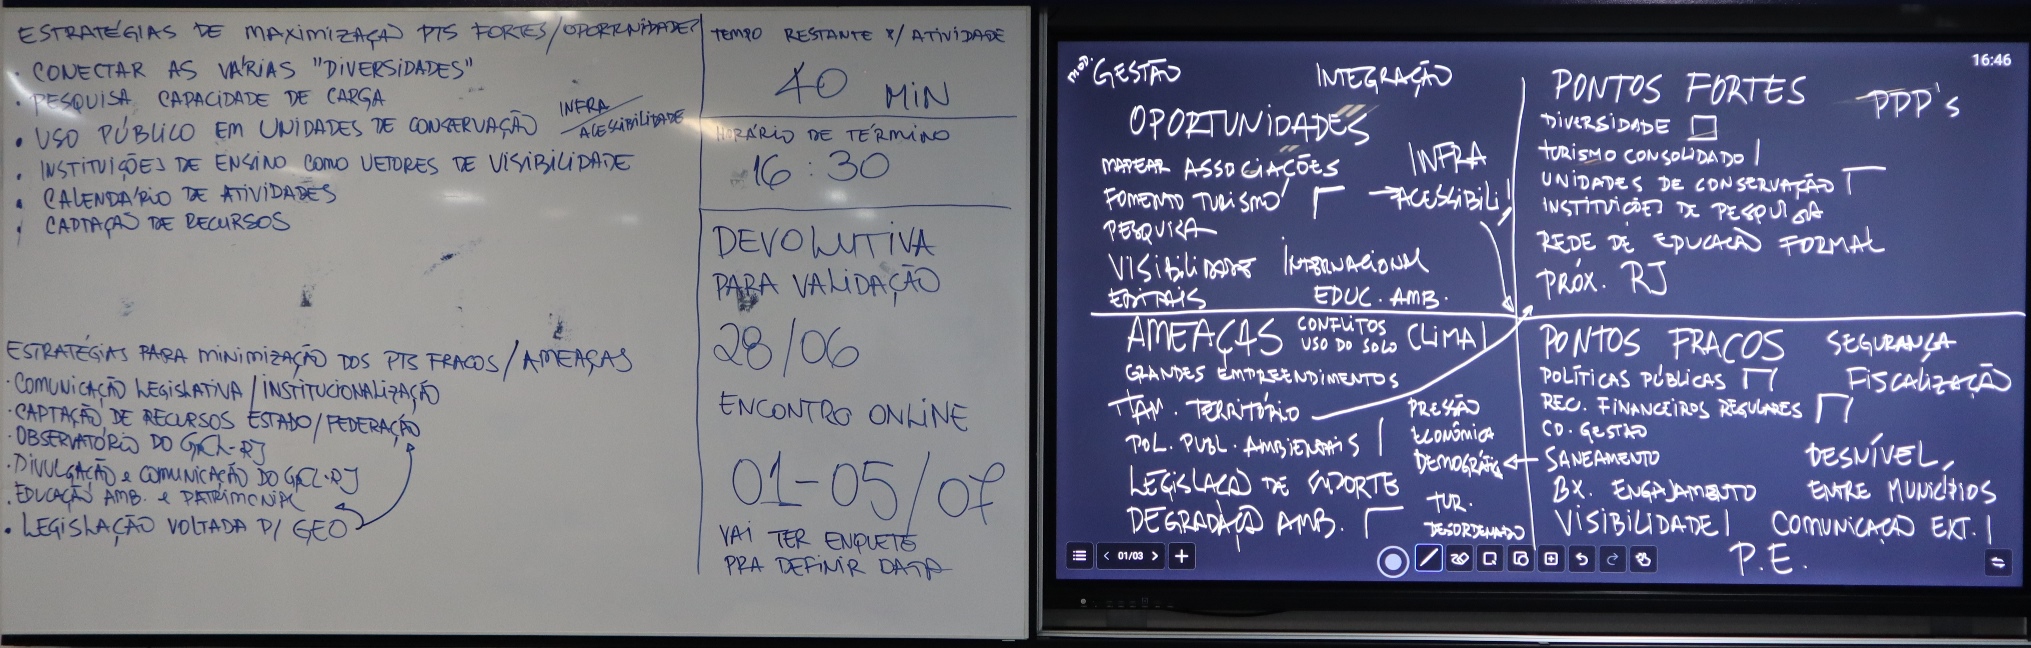 ESTRATÉGIAS DE MAXIMIZAÇÃO PTS FORTES/OPORTUNIDADES
• CONECTAR AS VÁRIAS "DIVERSIDADES"
• PESQUISA CAPACIDADE DE CARGA
• USO PÚBLICO EM UNIDADES DE CONSERVAÇÃO INFRA/ACESSIBILIDADE
• INSTITUIÇÕES DE ENSINO COMO VETORES DE VISIBILIDADE
• CALENDÁRIO DE ATIVIDADES
• CAPTAÇÃO DE RECURSOS
ESTRATÉGIAS PARA MINIMIZAÇÃO DOS PTS FRACOS/AMEAÇAS
• COMUNICAÇÃO LEGISLATIVA/INSTITUCIONALIZAÇÃO
• CAPTAÇÃO DE RECURSOS ESTADO/FEDERAÇÃO
• OBSERVATÓRIO DO GCL-RJ
• DIVULGAÇÃO e COMUNICAÇÃO DO GCL-RJ
• EDUCAÇÃO AMB. e PATRIMONIAL
• LEGISLAÇÃO VOLTADA P/ GEO
TEMPO RESTANTE P/ ATIVIDADE
40 MIN
HORÁRIO DE TÉRMINO
16:30
DEVOLUTIVA
PARA VALIDAÇÃO
28/06
ENCONTRO ONLINE
01-05/07
VAI TER ENQUETE
PRA DEFINIR DATA
16:46
MOD. GESTÃO INTEGRAÇÃO
OPORTUNIDADES
MAPEAR ASSOCIAÇÕES
FOMENTO TURISMO
PESQUISA
INFRA
→ ACESSIBILI
VISIBILIDADE INTERNACIONAL
EDITAIS EDUC. AMB.
PONTOS FORTES PPP's
DIVERSIDADE
TURISMO CONSOLIDADO
UNIDADES DE CONSERVAÇÃO
INSTITUIÇÕES DE PESQUISA
REDE DE EDUCAÇÃO FORMAL
PRÓX. RJ
AMEAÇAS CONFLITOS USO DO SOLO CLIMA
GRANDES EMPREENDIMENTOS
TAM. TERRITÓRIO
POL. PUBL. AMBIENTAIS
LEGISLAÇÃO DE SUPORTE
DEGRADAÇÃO AMB.
PRESSÃO
ECONÔMICA
DEMOGRÁFICA
TUR.
DESORDENADO
PONTOS FRACOS SEGURANÇA
POLÍTICAS PÚBLICAS FISCALIZAÇÃO
REC. FINANCEIROS REGULARES
CO. GESTÃO
SANEAMENTO DESNÍVEL
BX. ENGAJAMENTO ENTRE MUNICÍPIOS
VISIBILIDADE COMUNICAÇÃO EXT.
P.E.
01/03